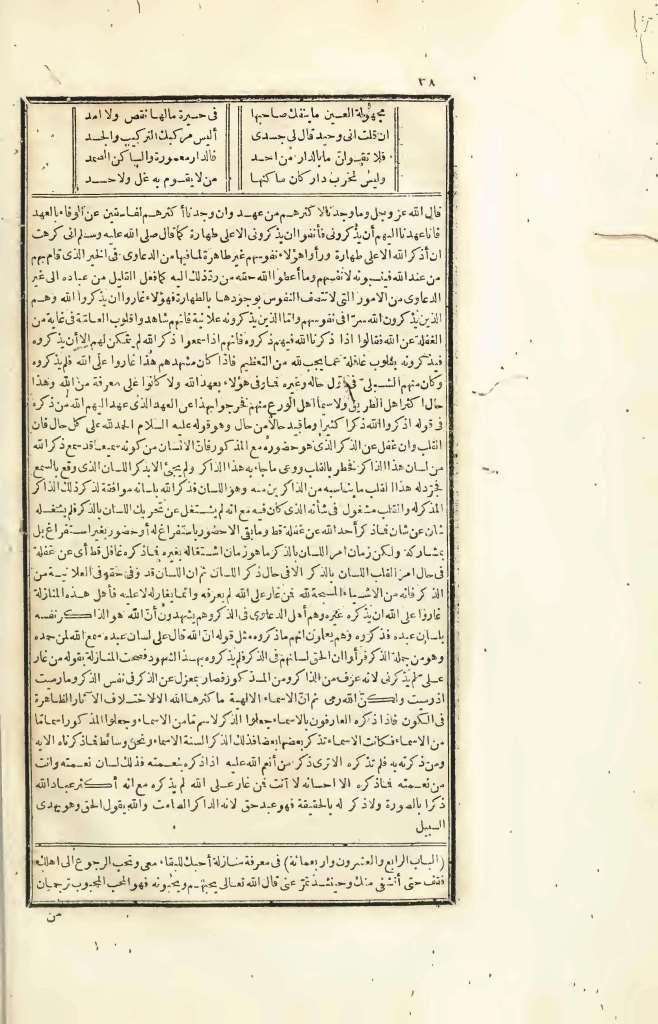 ٣٨
مجهولة العين ما ينفك صاحبها في حسيرة مالها نقص ولا أمد
ان قلت انى وحيد قال لى جسدى أليس مركبك التركيب والجسد
فلا تقولن ما بالدار من أحد فالدار معمورة والساكن الصمد
وليس تخرب دار كان ساكنها من لا يقوم به غل ولا حسد
قال الله عز وجل وما وجدنا لاكثرهم من عهد وان وجدنا أكثرهم لفاسقين عن الوفاء بالعهد
فانا عهدنا اليهم أن يذكرونى فأنفوا ان يذكرونى الاعلى طهارة كما قال صلى الله عليه وسلم انى كرهت
ان أذكر الله الا على طهارة ورأوا هؤلاء نفوسهم غير طاهرة لما فيها من الدعاوى فى الخير الذى قام بهم
من عند الله فينسبونه لانفسهم وما أعطوا الله حقه من رد ذلك اليه كما فعل القليل من عباده الى غير
الدعاوى من الامور التى لا تتصف النفوس بوجودها بالطهارة فهؤلاء غاروا ان يذكروا الله وهم
الذين يذكرون الله سرا فى نفوسهم واما الذين يذكرونه علانية فانهم شاهدوا قلوب العامة فى غاية من
الغفلة عن الله فقالوا اذا ذكرنا الله فيهم ذكروه فانهم اذا سمعوا ذكر الله لم يتمكن لهم الا أن يذكروه
فيذكرونه بقلوب غافلة عما يجب لله من التعظيم فاذا كان مشهدهم هذا غاروا على الله فلم يذكروه
وكان منهم الشبلى فى أول حاله وغيره فمازق هؤلاء بعهد الله ولا كانوا على معرفة من الله وهذا
حال أكثر أهل الطريق ولا سيما أهل الورع منهم فخرجوا بهذا عن العهد الذى عهد اليهم الله من ذكره
فى قوله اذكروا الله ذكرا كثيرا وما قيد حالا من حال وهو قوله عليه السلام الحمد لله على كل حال فان
القلب وان غفل عن الذكر الذى هو حضوره مع المذكور فان الانسان من كونه سميعا قد سمع ذكر الله
من لسان هذا الذاكر فخطر بالقلب ووعى ما جاء به هذا الذاكر ولم يجئ الا بذكر اللسان الذى وقع بالسمع
فجرد له هذا القلب ما يناسبه من الذاكرين منه وهو اللسان فذكر الله بلسانه موافقة لذكر ذلك الذاكر
المذكر له والقلب مشغول فى شأنه الذى كان فيه مع انه لم يشتغل عن تحريك اللسان بالذكر فلم يشغله
شان عن شان فما ذكر أحد الله عن غفلة قط وما بقى الا حضور باستفراغ له أو حضور بغير استفراغ بل
بمشاركة ولكن زمان أمر اللسان بالذكر ما هو زمان اشتغاله بغيره فما ذكره غافل قط أى عن غفلة
فى حال أمر القلب اللسان بالذكر الا فى حال ذكر اللسان ثم ان اللسان قد وفى حقه فى العلانية من
الذكر فانه من الاشياء المسبحة لله فمن غار على الله لم يعرفه وانما يغار له لا عليه فأهل هذه المنازلة
غاروا على الله ان يذكره غيره وهم أهل الدعاوى فى الذكر وهم يشهدون أن الله هو الذاكر نفسه
بلسان عبده فذكروه وهم يعلمون انهم ما ذكروه مثل قوله ان الله قال على لسان عبده سمع الله لمن حمده
وهو من جملة الذكر فرأوا ان الحق لسانهم فى الذكر فلم يذكروه بهذا الشهود فصحت المنازلة بقوله من غار
على لم يذكرنى لانه عرف من الذاكر ومن المذكور فصار بمعزل عن الذكر فى نفس الذكر وما رميت
اذ رميت ولكن الله رمى ثم ان الاسماء الالهية ما كثرها الله الا لاختلاف الآثار الظاهرة
فى الكون فاذا ذكره العارفون بالاسماء جعلوا الذكر لاسم ما من الاسماء وجعلوا المذكور اسما ما
من الاسماء فكانت الاسماء تذكر بعضها بعضا فذلك الذكر السنة الاسماء ونحن وسائط فما ذكرناه الا به
ومن ذكرته به فلم تذكره الا ترى ذكر من أنعم الله عليه اذا ذكره بنعمته فذلك لسان نعمته وأنت
من نعمته فما ذكره الا احسانه لا أنت فمن غار على الله لم يذكره مع انه أكثر عباد الله
ذكرا بالصورة ولا ذكر له بالحقيقة فهو عبد حق لانه الذاكر الصامت والله يقول الحق وهو يهدى
السبيل
(الباب الرابع والعشرون واربعمائة) فى معرفة منازلة أحبك للبقاء معى وتحب الرجوع الى اهلك
فقف حتى أتشفى منك وحينئذ تمر عنى قال الله تعالى يحبهم ويحبونه فهو المحب المحبوب ترجمان
من